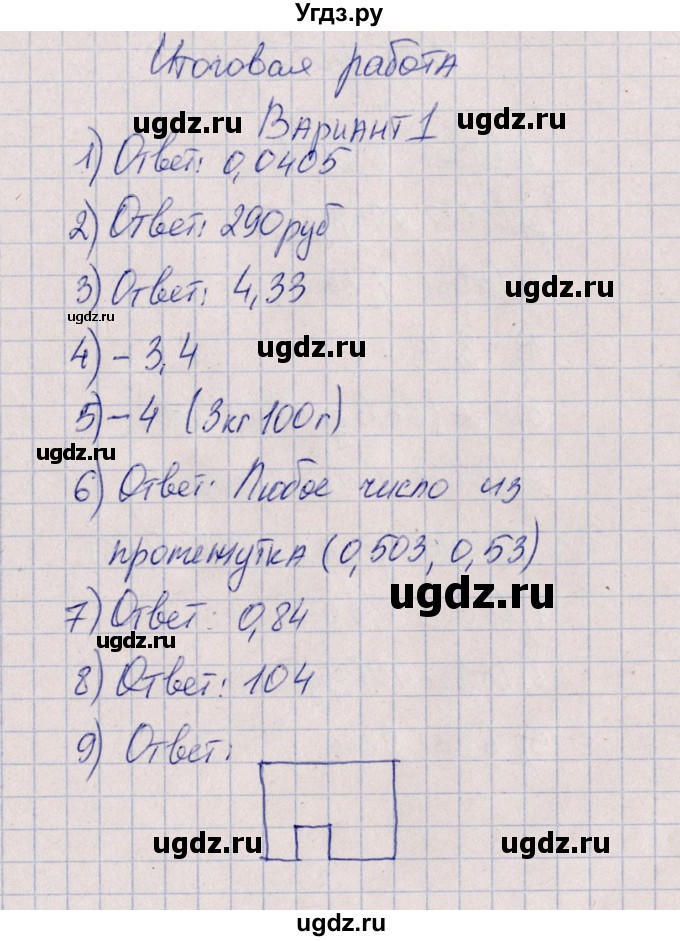 Угдз.ру
Итоговая работа
ugdz.ru Вариант 1 ugdz.ru
1) Ответ: 0,0405
2) Ответ: 290 руб
3) Ответ: 4,33 ugdz.ru
ugdz.ru
4) – 3,4 ugdz.ru
5) – 4 (3 кг 100 г)
ugdz.ru
6) Ответ: Любое число из
промежутка (0,503; 0,53)
ugdz.ru
7) Ответ: 0,84
ugdz.ru
8) Ответ: 104
9) Ответ:
ugdz.ru ugdz.ru ugdz.ru
ugdz.ru